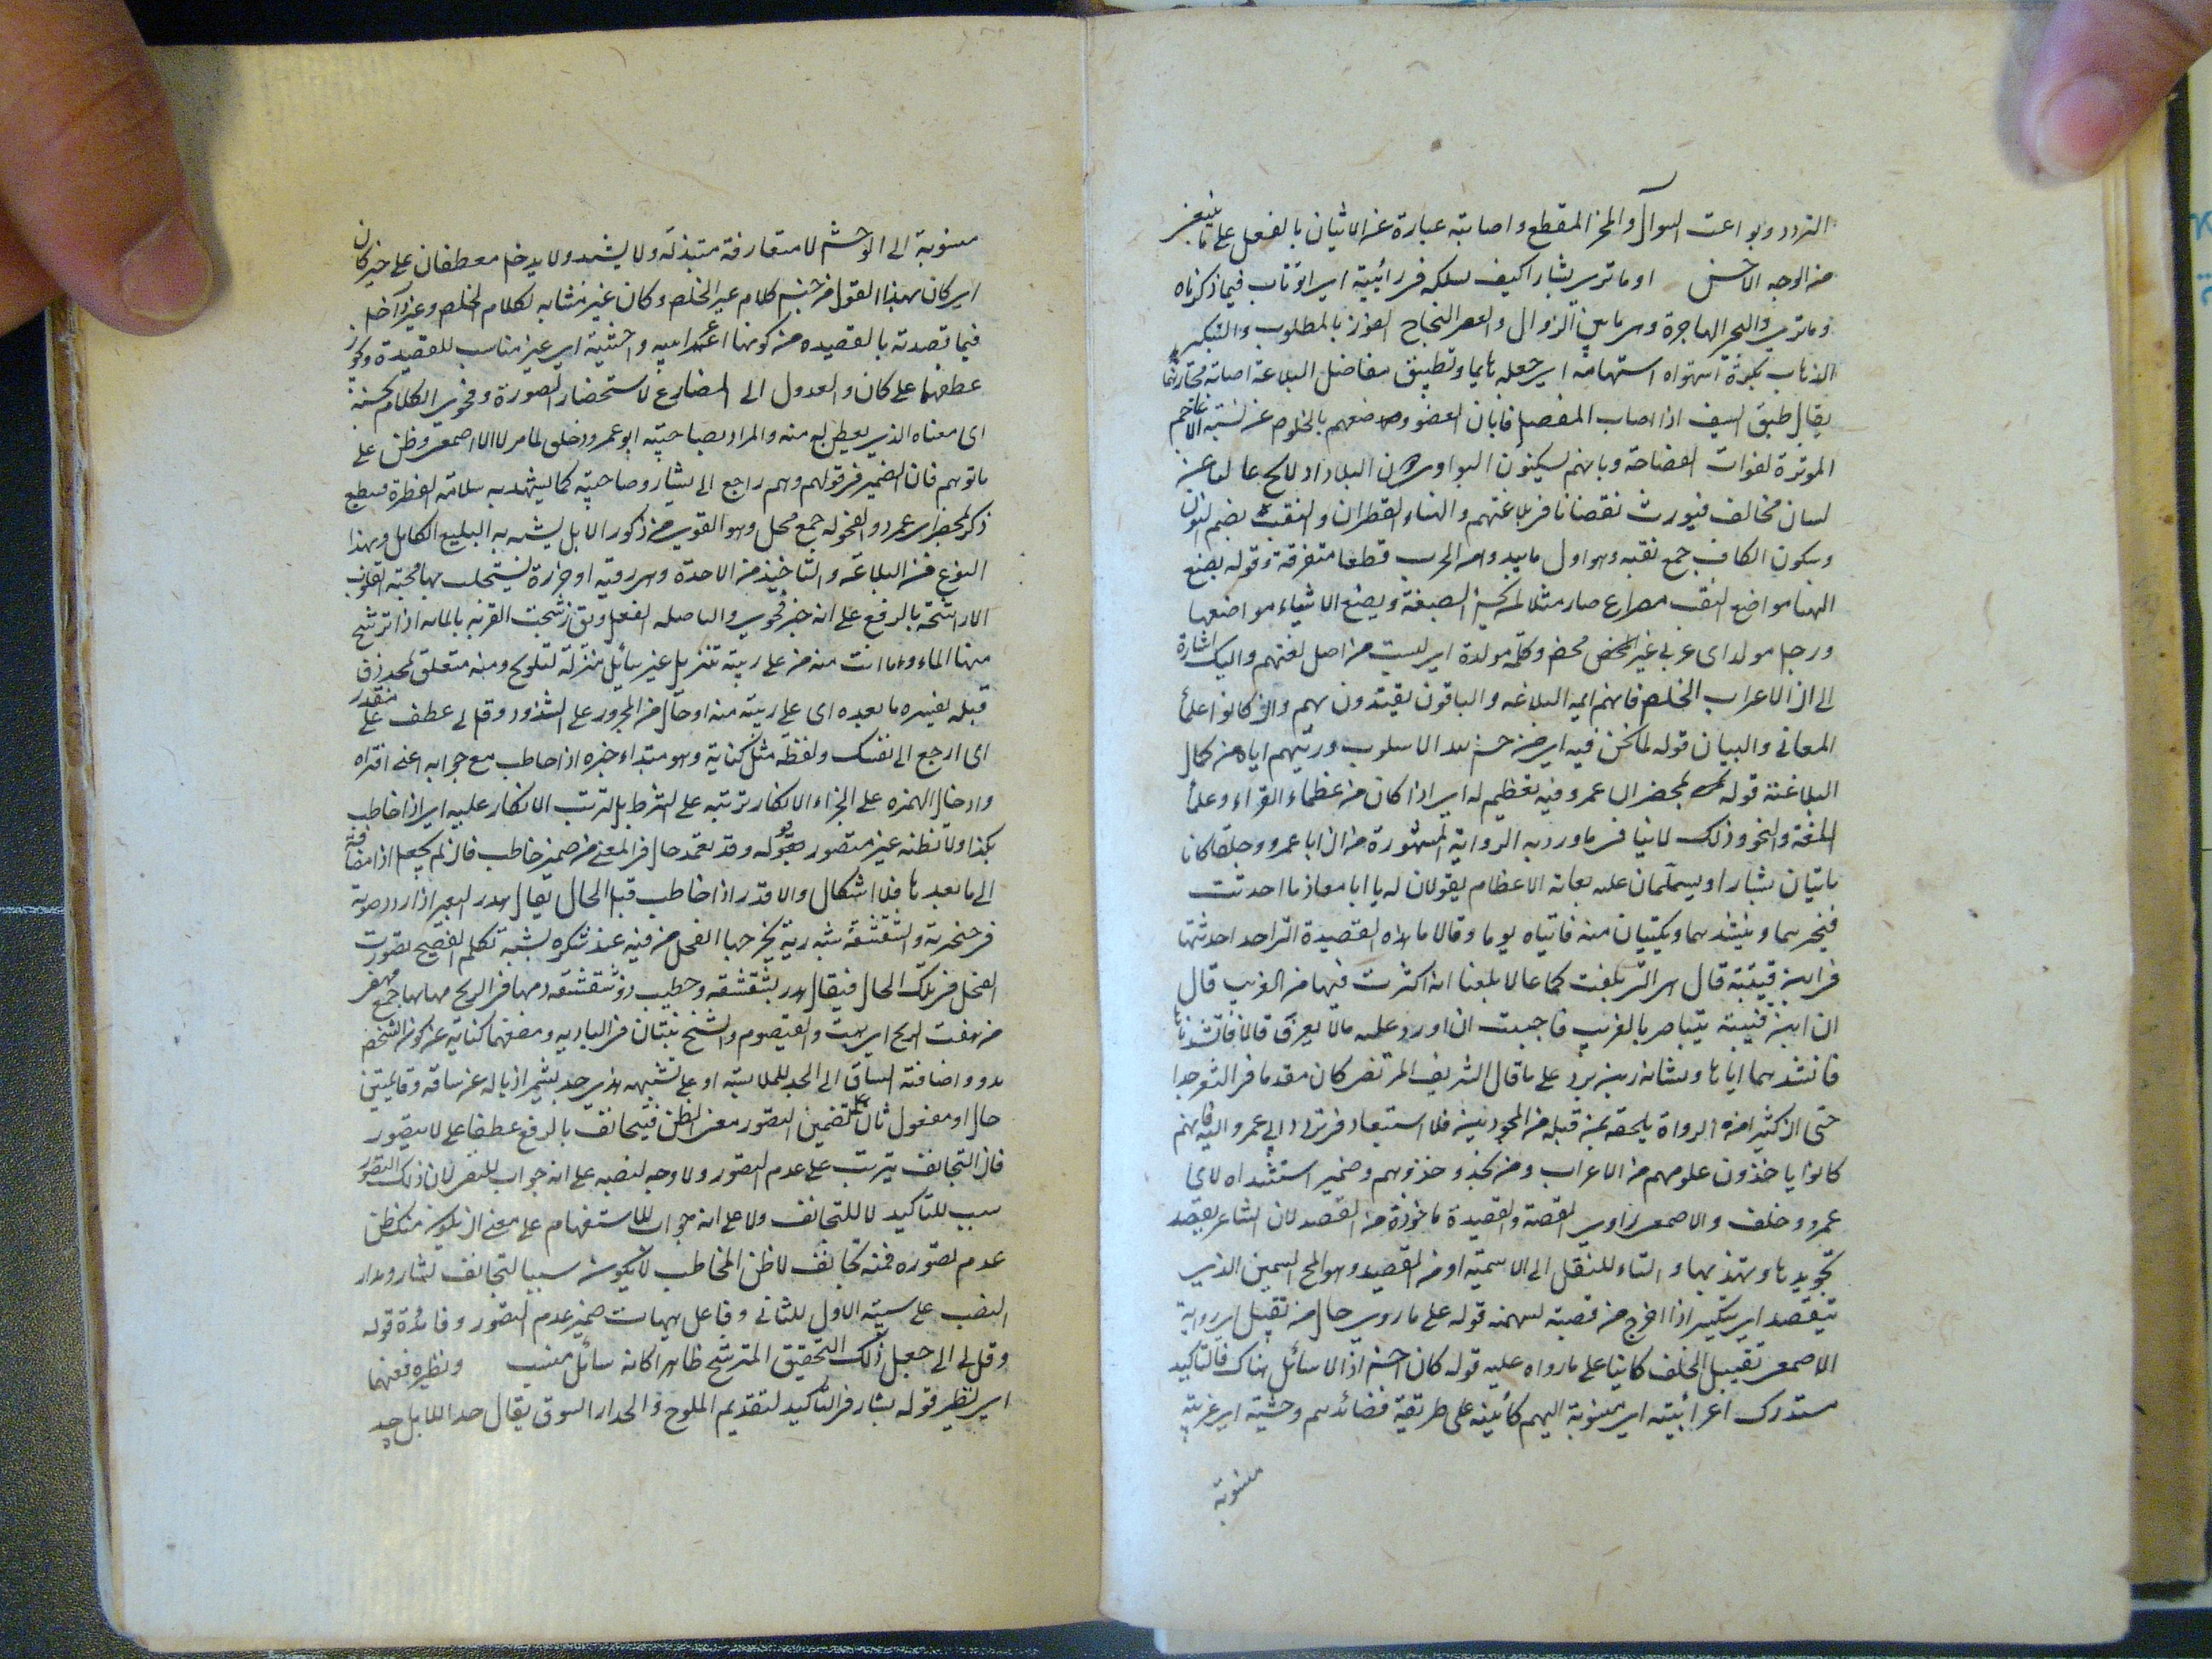 التردد وبواعث السوال والمحز المقطع واصابته عبارة عن الاتيان بالفعل على ما ينبغى
من الوجه الاحسن او ما ترى بشارا كيف سلكه فى رائيته اى اوتاب فيما ذكرناه
وما ترى والهجر الهاجرة وهى ما بين الزوال والعصر النجاح الفوز بالمطلوب والتبكير
الذهاب بكرة استهواه استهامه اى جعله هايما وتطبيق مفاصل البلاغة اصابة محازها
يقال طبق السيف اذا اصاب المفصل فابان العضو وصفهم بالخلوص عن نسبة الاعاجم
الموثرة لفوات الفصاحة وبانهم يسكنون البوادى دون البلاد اذ لا يخ عا لبا عن
لسان مخالف فيورث نقصانا فى بلاغتهم والهناء القطران والنقب بضم النون
وسكون القاف جمع نقبه وهو اول ما يبدو من الجرب قطعا متفرقة وقوله يضع
الهنا مواضع النقب مصراع صار مثلا لمن يحسن الصنعة ويضع الاشياء مواضعها
ورجل مولد اى عربى غير محض وكلمة مولدة اى ليست من اصل لغتهم واليك اشارة
الى ان الاعراب الخلص فانهم ايمة البلاغه والباقون يقتدون بهم وان كانوا علما
المعانى والبيان قوله لما نحن فيه اى من حسن هذا الاسلوب ورتبتهم اياه من كمال
البلاغة قوله بمحضر ابى عمرو فيه تعظيم له اى اذا كان من عظماء القراء وعلما
اللغة والنحو وذلك لا ينافى ما ورد به الرواية المشهورة من ان ابا عمرو وخلفا كانا
ياتيان بشارا ويسلمان عليه بغاية الاعظام يقولان له يا ابا معاذ ما احدثت
فيخبرهما وينشدهما ويكتبان منه فاتياه يوما وقالا ما هذه القصيدة التى احدثتها
فى ابن قتيبة قال هى التى بلغت كما قالا بلغنا انك اكثرت فيها من الغريب قال
ان ابن قتيبة يتباصر بالغريب فاحببت ان اورد عليه مالا يعرف قالا فانشدناها
فانشدهما اياها وبشار بن برد على ما قال الشريف المرتضى كان مقدما فى الشعر جدا
حتى ان كثيرا من الرواة يلحقه بمن قبله من المجودين فلا استبعاد فى تردد ابى عمرو اليه فانهم
كانوا ياخذون علومهم من الاعراب ومن يحذو حذوهم وضمير استنشداه لابى
عمرو وخلف والاصمعى راوى القصة والقصيدة ماخوذة من القصد لان الشاعر يقصد
تجويدها وتهذيبها والتاء للنقل الى الاسمية او من القصيد وهو المخ السمين الذى
يتقصد اى يتكسر اذا اخرج من قصبه لسمنه قوله على ما روى حال من تقبيل اى رواية
الاصمعى تقبيل الخلف كاينا على ما رواه عليه قوله كان احسن اذ لا سائل هناك فالتاكيد
مستدرك اعرابيته اى منسوبة اليهم كائنه على طريقة قصائدهم وحشية اى غريبة
منسوبة
منسوبة الى الوحش لا متعارفة متبذلة ولا يشهد ولا يدخل معطفان على خبر كان
اى كان هذا القول من جنس كلام غير الخلص وكان غير مشابه لكلام الخلص وغير داخل
فيما قصدته بالقصيده من كونها اعرابيه وحشية اى غير مناسب للقصيدة ويجوز
عطفهما على كان والعدول الى المضارع لاستحضار الصورة وفحوى الكلام كحسنه
اى معناه الذى يعطى له منه والمراد بصاحبيه ابو عمرو وخلف لما مر لا الاصمعى وظن على
ما توهم فان الضمير فى قولهم وهم راجع الى بشار وصاحبيه كما يشهد به سلامة الفطرة مع
ذكر محضر ابى عمرو والفحوله جمع فحل وهو القوى من ذكور الابل يشبه به البليغ الكامل وهذا
النوع من البلاغة والتاخيذ من الاخذة وهى رقيه او خرزة يستجلب بها محبة القلوب
الا راشحة بالرفع على انه خبر فحوى والباصله الفعل وق رشحت القربه بالماء اذا ترشح
منها الماء وما انت منه من على ريبه تنزيل غير سائل منزلة لتلويح ومنه متعلق بمحذوف
قبله يفسره ما بعده اى على ريبة منه او حال من المجرور على الشذوذ وقل لى عطف على مقدر
اى ارجع الى نفسك ولفظة مثل كناية وهو مبتدا خبره اذا خاطب مع جوابه اعنى اتراه
وادخال الهمزه على الجزاء لانكار ترتبه على الشرط بل لترتب الانكار عليه اى اذا خاطب
بكذا ولا تظنه غير متصور وقد تعمد حال فى المعنى من ضمير خاطب فان لم يجعل اذا مضافة
الى ما بعدها فلا اشكال والا قدر اذا خاطب قبل الحال يقال هدر البعير اذا ردد صوته
فى حنجرته والشقشقة شبه رية يخرجها الفحل من فيه عند شكره يشبه تكلم الفصيح بصوت
الفحل فى تلك الحال فيقال هدر بشقشقه وخطيب ذو شقشقه ومهافى الريح مهابها جمع مهفى
من هفت الريح اى هبت والقيصوم والشيح نبتان فى الباديه ومضغهما كناية عن كون الشخص
بدو واضافة الساق الى الجد للملابسة او على تشبيهه بذى جد يشمر اذياله عن ساقه وقائمتين
حال او مفعول ثان على تضمين التصور معنى الظن فيتحانف بالرفع عطفا على لا يتصور
فان التجانف يترتب على عدم التصور ولا وجه لنصبه على انه جواب للنفى لان ذلك التصور
سبب للتاكيد لا للتجانف ولا على انه جواب للاستفهام على معنى ان يكون منك ظن
عدم تصوره فمنه تجانف لا ظن المخاطب لا يكون سببا لتجانف بشار ومدار
النصب على سببية الاول للثانى وفاعل هيهات ضمير عدم التصور وفائدة قوله
وقل لى الى جعل ذلك التحقيق المترشح ظاهرا كانه سائل منسب ونظيره فغنها
اى نظير قوله بشار فى التاكيد لتقديم الملوح والحداء السوق يقال حدا الابل حد